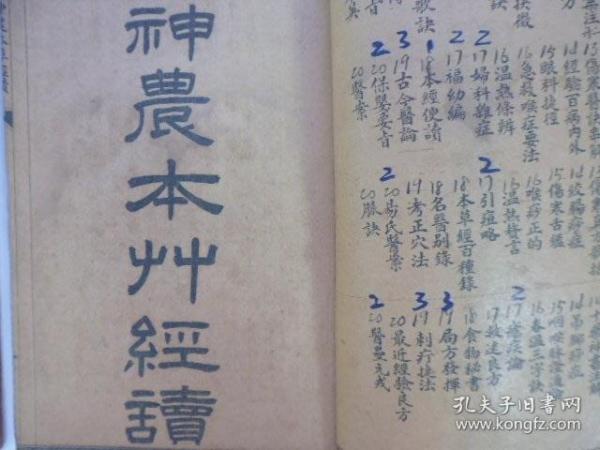 神農本艸經讀
歌訣
13傷寒醫訣串解
14經驗百病內外方
15眼科捷徑
16急救喉症要法
16溫熱條辨
2
17婦科雜症
2
17福幼編
1
18本經便讀
3
19古今醫論
2
20保嬰要旨
20醫案
14絞腸痧症
15傷寒古鑑
16喉痧正的
16溫熱發言
2
17引痘略
18本草經百種錄
18名醫別錄
19考正穴法
2
20易氏醫案
20脈訣
15咽喉
16春溫三字訣
2
17
17救迷良方
18食物秘書
3
19局方發揮
3
19刺疔捷法
20最近經驗良方
2
20醫壘元戎
孔夫子旧书网
www.kongfz.com